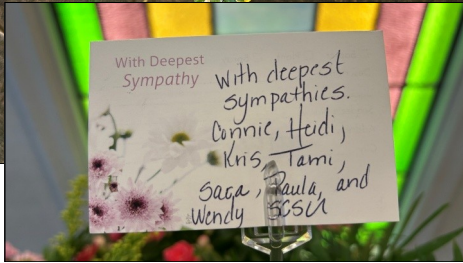 With Deepest
Sympathy
With deepest
sympathies.
Connie, Heidi,
Kris, Tami,
Saga, Paula, and
Wendy SCSU